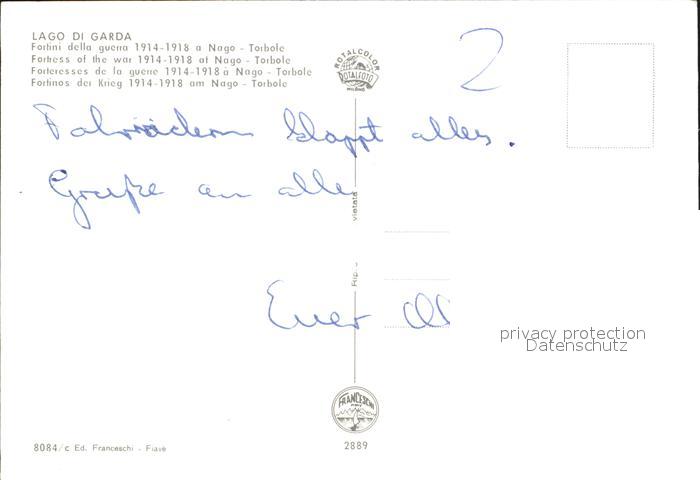 LAGO DI GARDA
Fortini della guerra 1914-1918 a Nago - Torbole
Fortress of the war 1914-1918 at Nago - Torbole
Forteresses de la guerre 1914-1918 à Nago - Torbole
Fortinos der Krieg 1914-1918 am Nago - Torbole
ROTALCOLOR
ROTALFOTO
MILANO
2
Fahrrädern klappt alles.
Grüße an alle
vietata
Rip.
Euer
privacy protection
Datenschutz
FRANCESCHI
8084/c Ed. Franceschi - Fiavè
2889